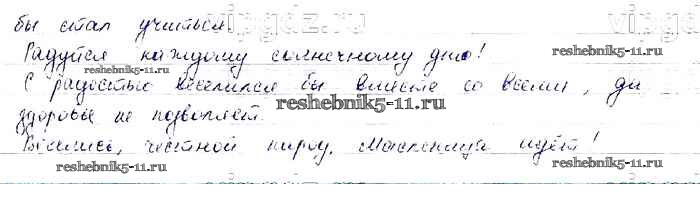 бы стал учиться.
Радуйся каждому солнечному дню!
С радостью веселился бы вместе со всеми, да
здоровье не позволяет.
reshebnik5-11.ru
Веселись, честной народ, Масленица идёт!
reshebnik5-11.ru
reshebnik5-11.ru
vipgdz.ru
vipgdz.ru